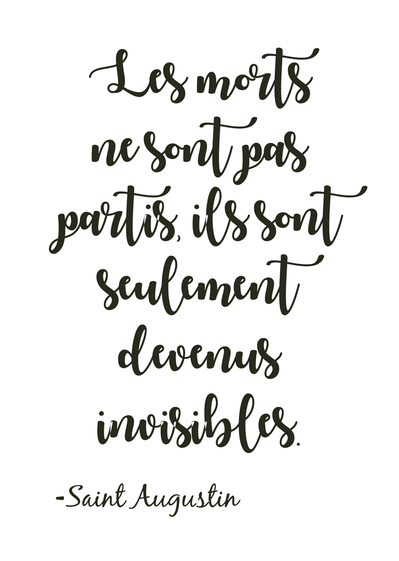 Les morts
ne sont pas
partis, ils sont
seulement
devenus
invisibles.
-Saint Augustin